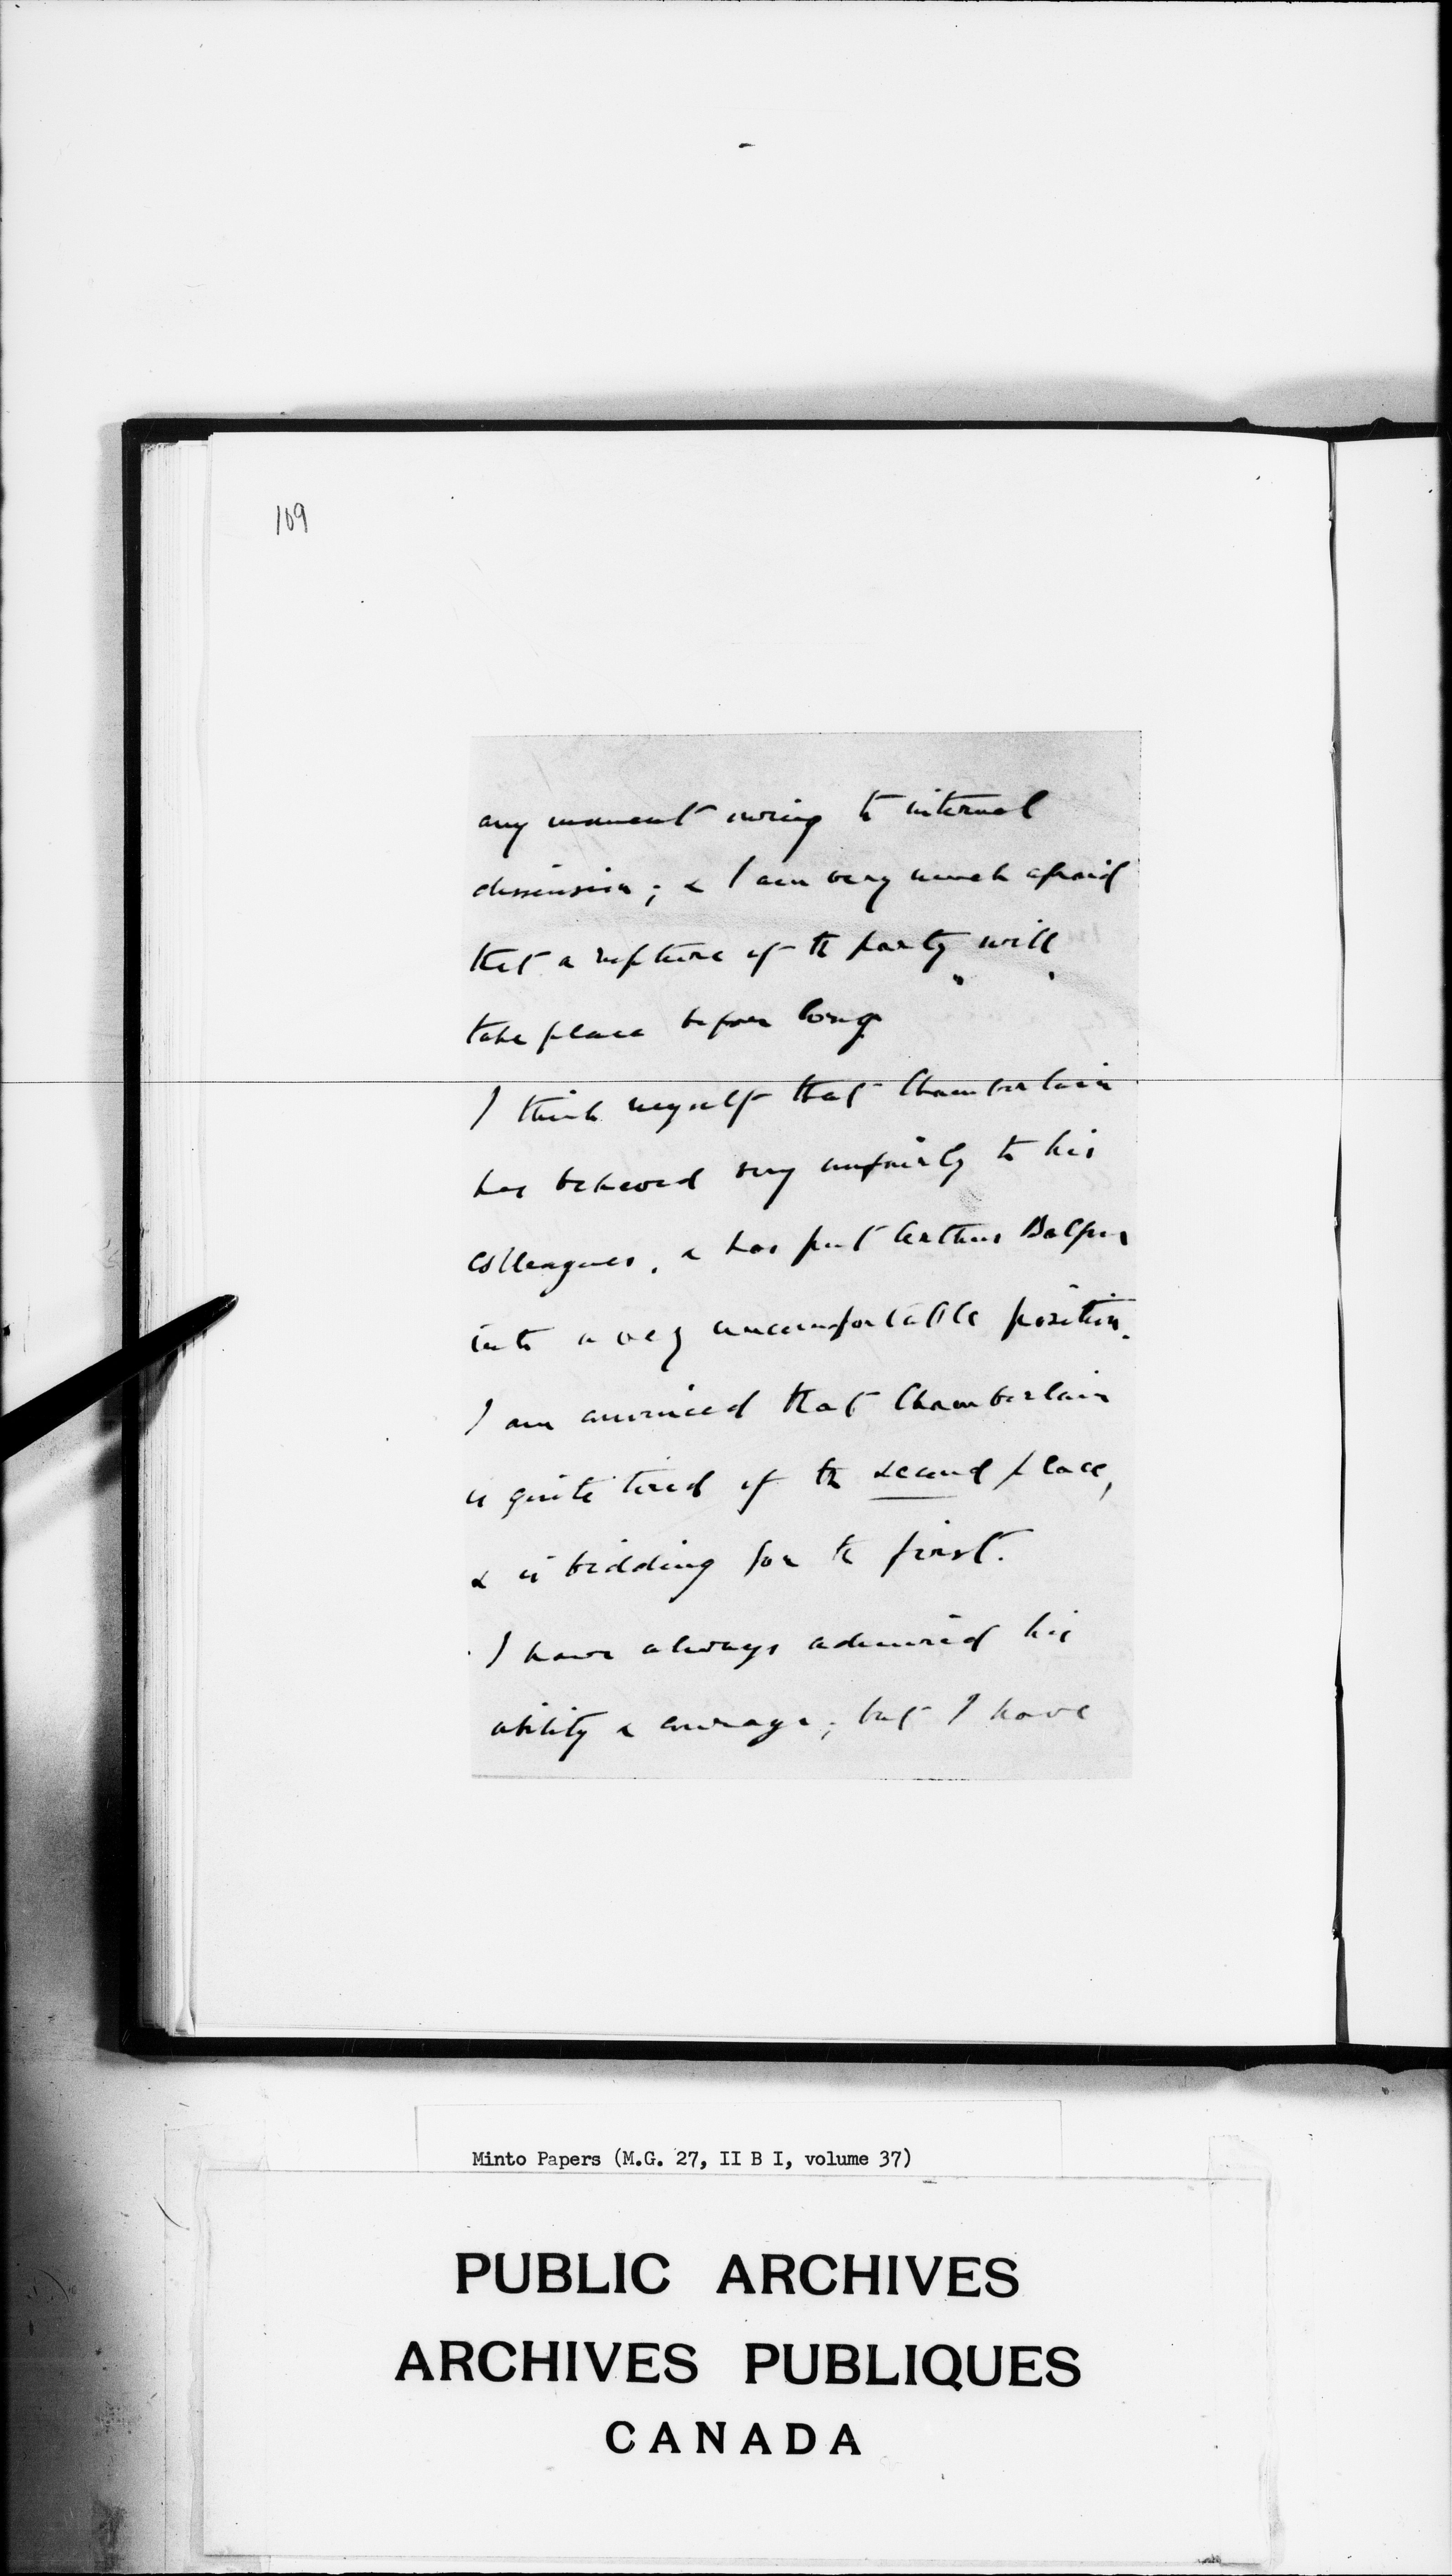 109
any moment owing to internal
dissension; & I am very much afraid
that a rupture of the party will
take place before long
I think myself that Chamberlain
has behaved very unfairly to his
colleagues, & has put Arthur Balfour
into a very uncomfortable position.
I am convinced that Chamberlain
is quite tired of the second place,
& is bidding for the first.
I have always admired his
ability & courage; but I have
Minto Papers (M.G. 27, II B I, volume 37)
PUBLIC ARCHIVES
ARCHIVES PUBLIQUES
CANADA